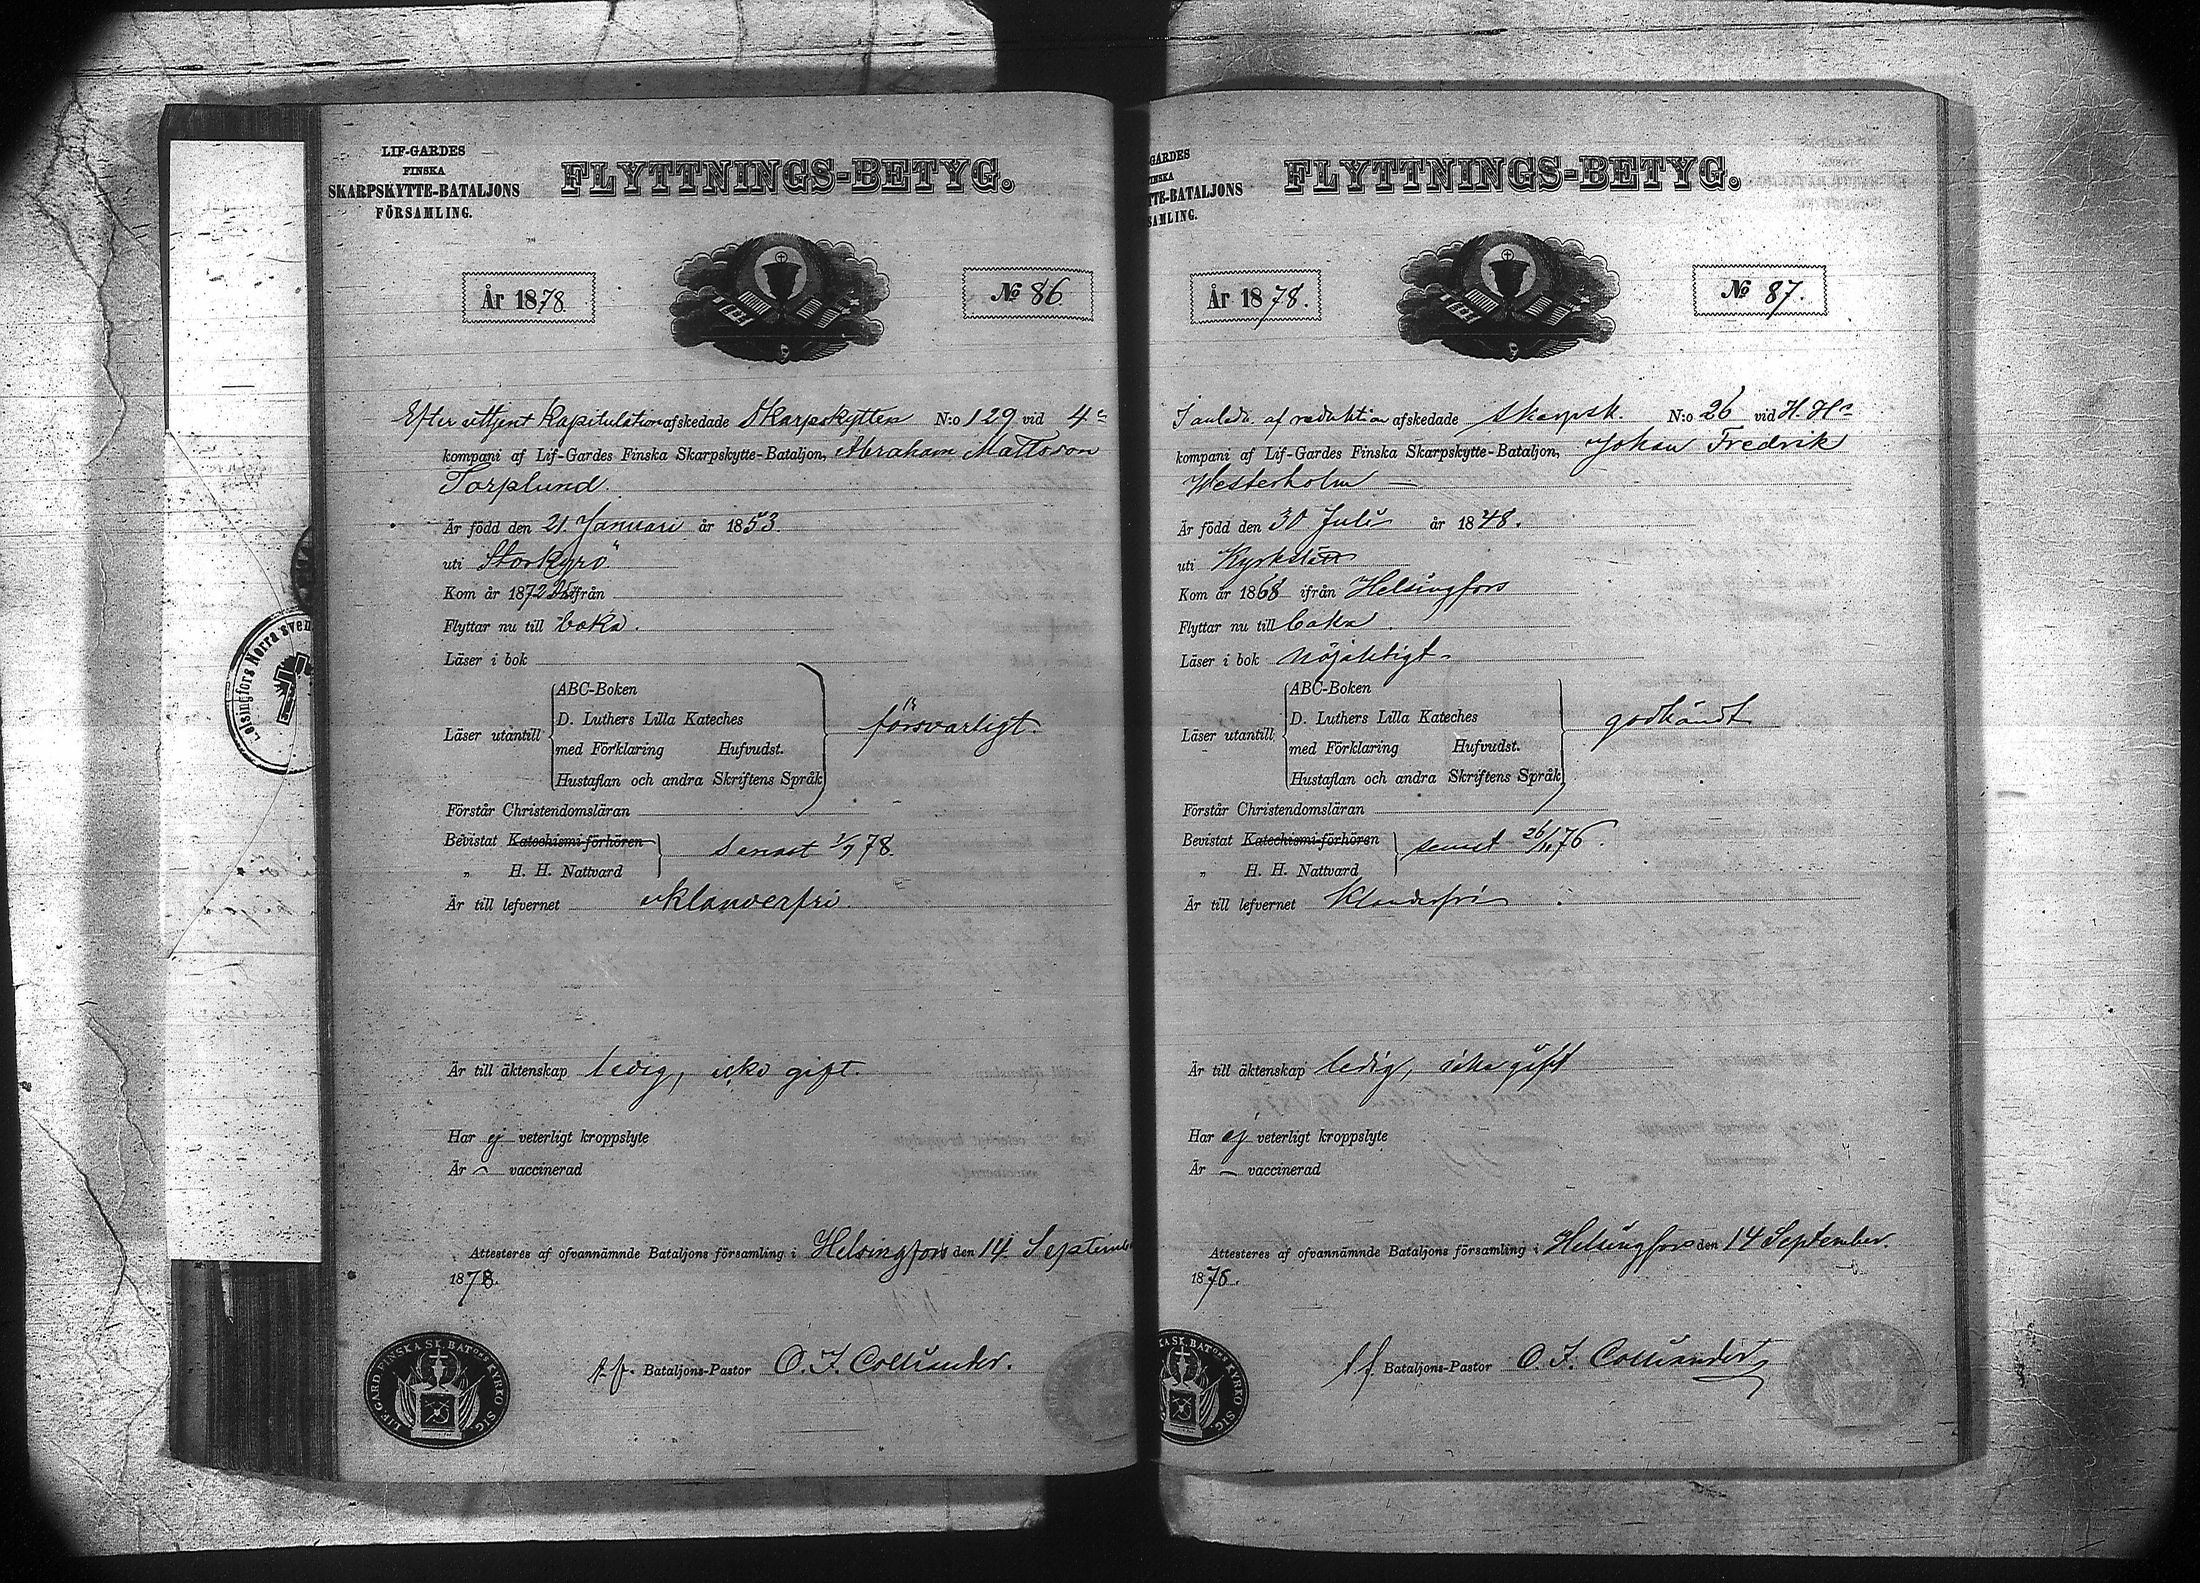 LIF-GARDES
FINSKA
SKARPSKYTTE-BATALJONS
FÖRSAMLING.
FLYTTNINGS-BETYG.
År 1878.
No 86
Efter uttjent Kapitulation afskedade Skarpskytten N:o 129 vid 4e
kompani af Lif-Gardes Finska Skarpskytte-Bataljon, Abraham Mattsson
Torplund.
Är född den 21 Januari år 1853.
uti Storkyro
Kom år 1872 ifrån
Flyttar nu till
Läser i bok
ABC-Boken
D. Luthers Lilla Kateches
Läser utantill försvarligt.
med Förklaring Hufvudst.
Hustaflan och andra Skriftens Språk
Förstår Christendomsläran
Bevistat Katechismi-förhören senast 1/9 78.
„ H. H. Nattvard
Är till lefvernet klanderfri.
Är till äktenskap ledig, icke gift.
Har ej veterligt kroppslyte
Är vaccinerad
Attesteres af ofvannämnde Bataljons församling i Helsingfors den 14 September
1878.
t. f. Bataljons-Pastor O. F. Colliander.
LIF-GARD FINSKA SK. BATONS KYRKO SIG.
Helsingfors Norra sven
GARDES
INSKA
TTE-BATALJONS
SAMLING.
FLYTTNINGS-BETYG.
År 1878.
No 87.
I anledn. af reduktion afskedade Skarpsk. N:o 26 vid H. Hs
kompani af Lif-Gardes Finska Skarpskytte-Bataljon, Johan Fredrik
Westerholm —
Är född den 30 Juli år 1848.
uti Kyrkslätt
Kom år 1868 ifrån Helsingfors
Flyttar nu till
Läser i bok nöjaktigt.
ABC-Boken
D. Luthers Lilla Kateches
Läser utantill godkändt
med Förklaring Hufvudst.
Hustaflan och andra Skriftens Språk
Förstår Christendomsläran
Bevistat Katechismi-förhören senast 26/11 76.
„ H. H. Nattvard
Är till lefvernet Klanderfri
Är till äktenskap ledig, icke gift
Har ej veterligt kroppslyte
Är — vaccinerad
Attesteres af ofvannämnde Bataljons församling i Helsingfors den 14 September.
1878.
t f. Bataljons-Pastor O. F. Colliander
KA SK. BATONS KYRKO SIG.